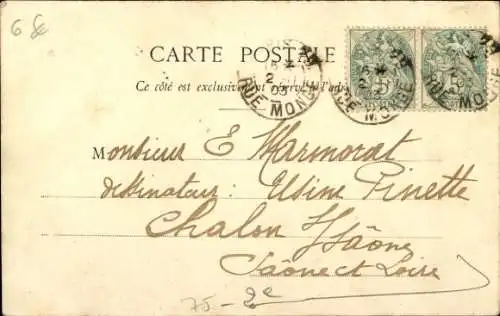 6 €
CARTE POSTALE
Ce côté est exclusivement réservé à l'adr
RUE MONGE
RUE MONGE
RUE MONGE
Monsieur E Marmorat
dessinateur : Usine Pinette
Chalon s/ Saône
Saône et Loire
75 - 2e